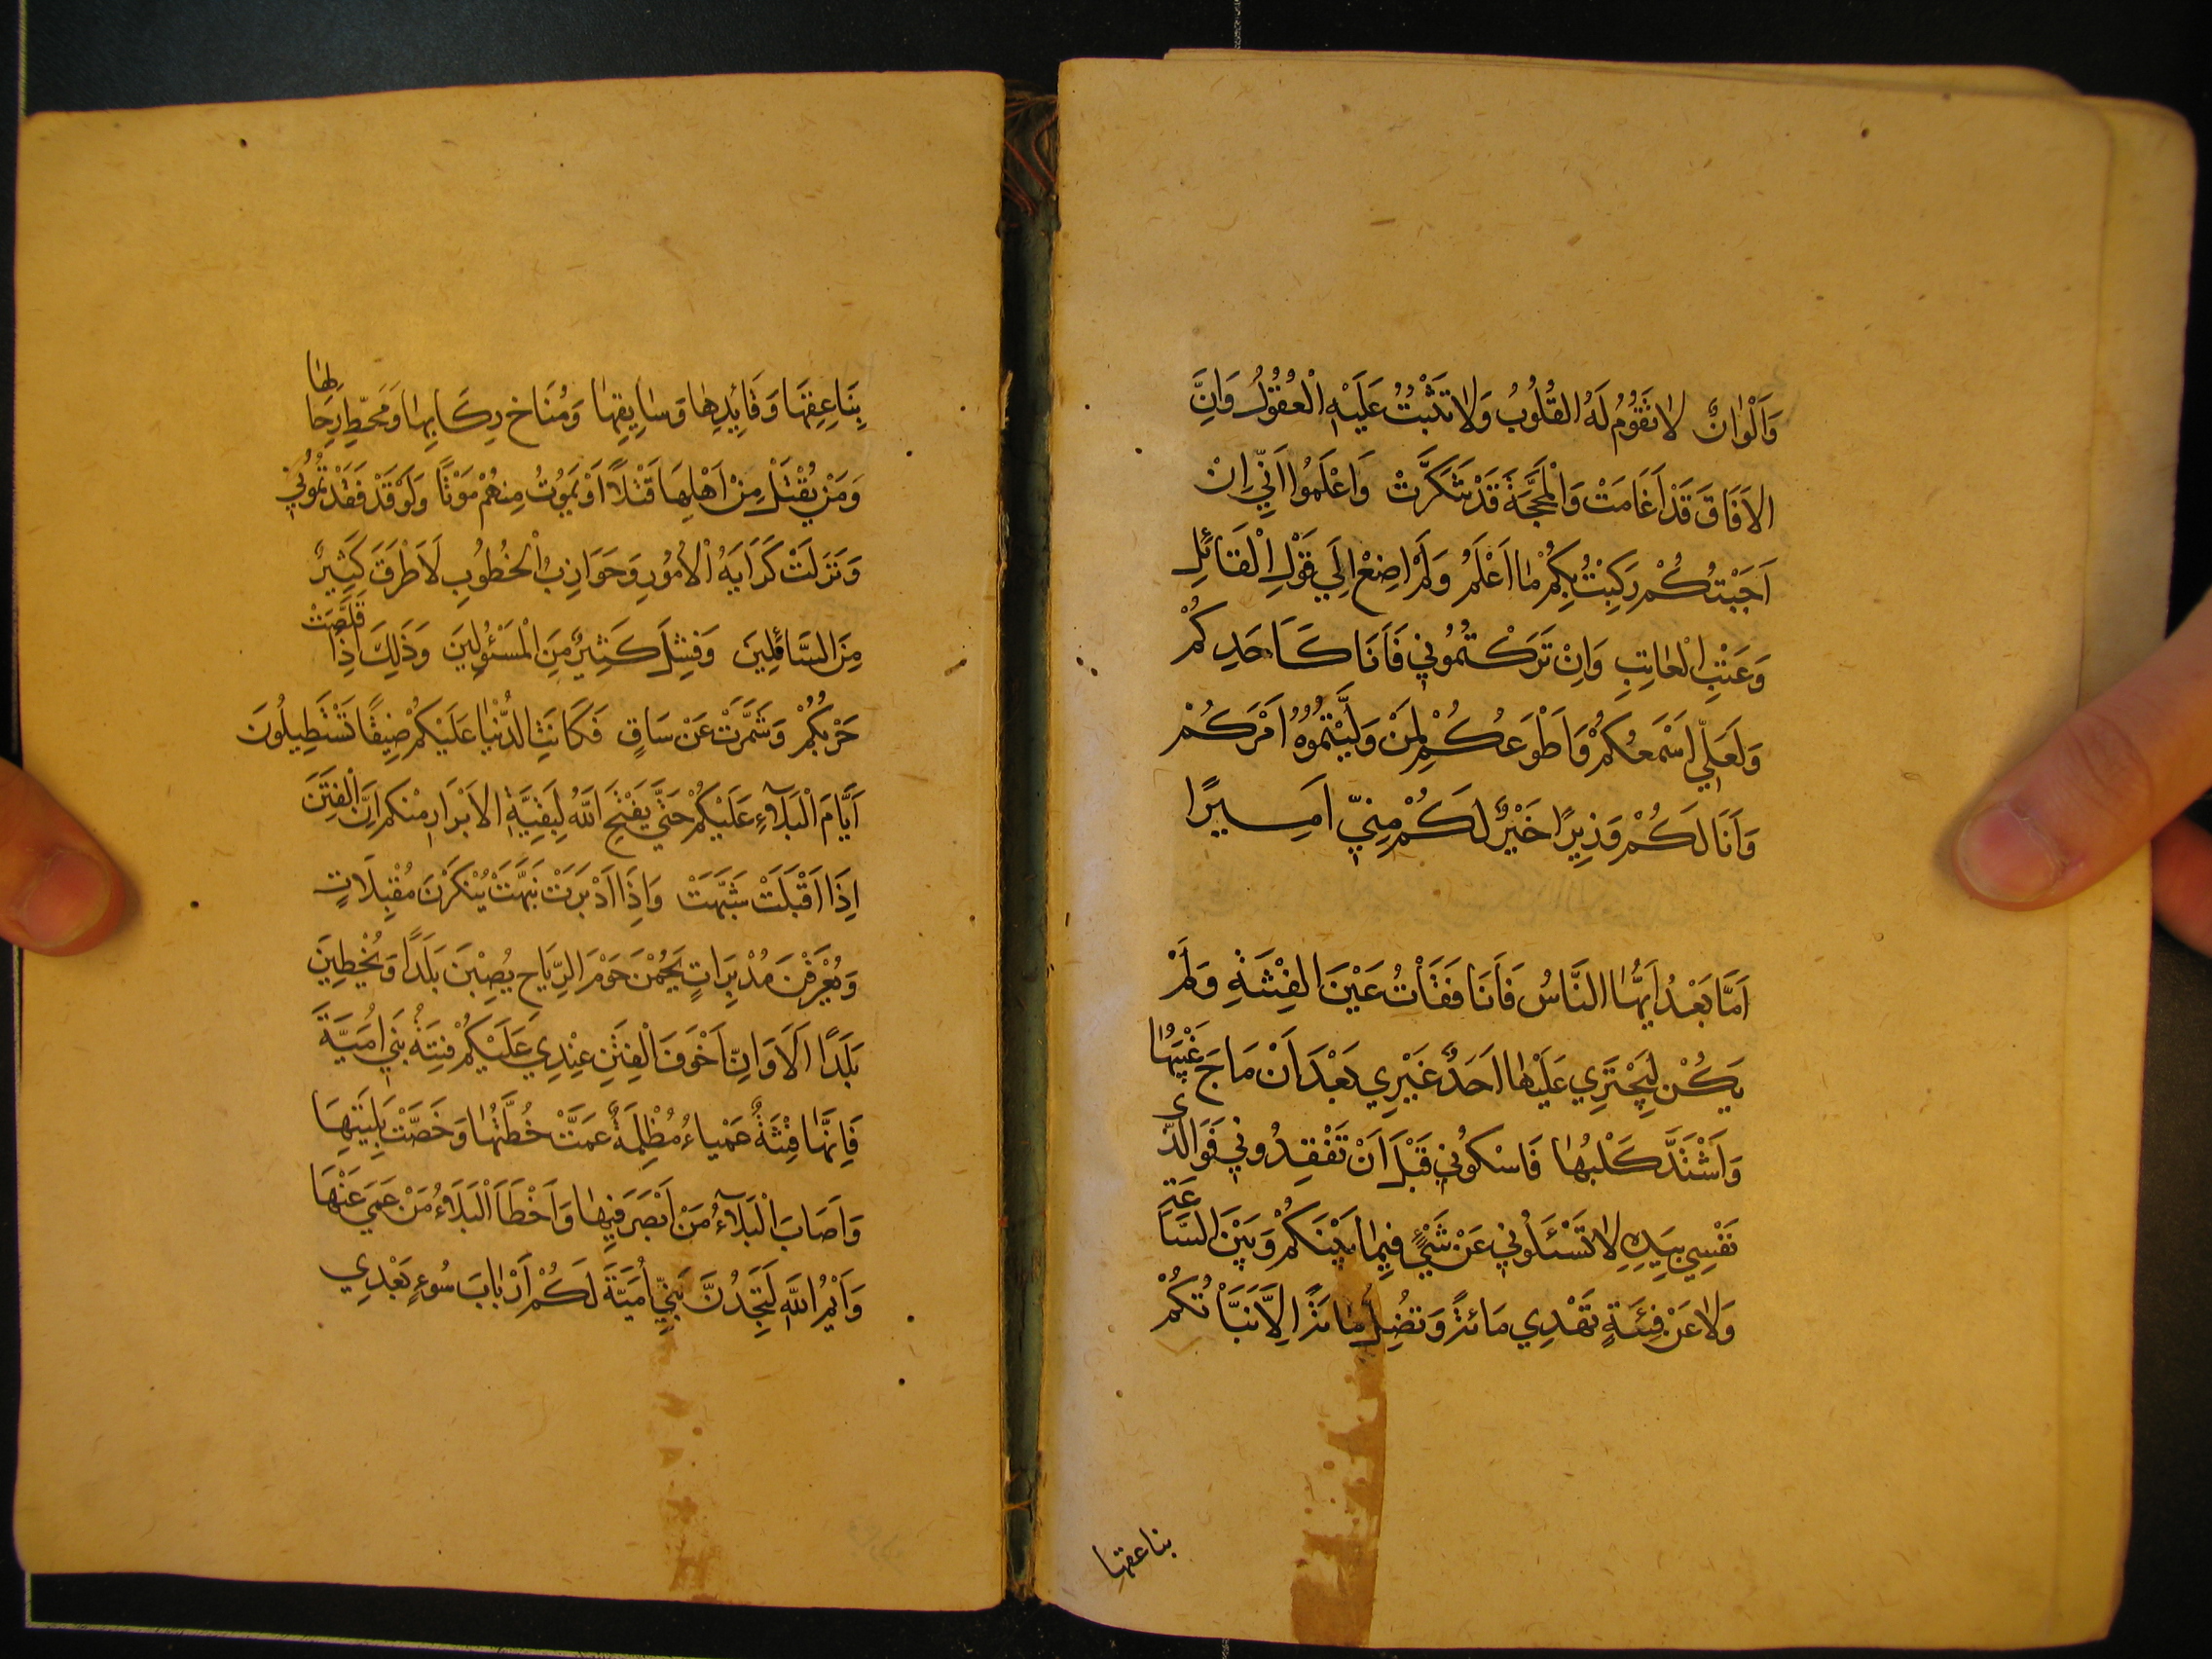 وَاَلْوٰانٌ لاٰتَقُوُمُ لَهُ القُلُوبُ وَلاٰتَثْبُتُ عَلَيْهِ الْعُقُولُ وَاِنَّ
الاٰفَاقَ قَدْ اَغَامَتْ وَالْمَحَجَّةَ قَدْ تَنَكَّرَتْ وَاعْلَمُوا اَنّي اِنْ
اَجَبْتُكُمْ رَكِبْتُ بِكُمْ مٰا اَعْلَمُ وَلَمْ اُصْغِ اِلَي قَوْلِ الْقَائِلِ
وَعَتْبِ الْعٰاتِبِ وَاِنْ تَرَكْتُمُوُنِي فَاَنَا كَاَحَدِكُمْ
وَلَعَلّي اَسْمَعُكُمْ وَاَطْوَعُكُمْ لِمَنْ وَلَّيْتُمُوُهُ اَمْرَكُمْ
وَاَنَا لَكُمْ وَزِيرًا خَيْرٌ لَكُمْ مِنِّي اَمِيرًا
اَمَّا بَعْدُ اَيُّهَا النَّاسُ فَاَنَا فَقَأْتُ عَيْنَ الفِتْنَةِ وَلَمْ
يَكُنْ لِيَجْتَرِي عَلَيْهٰا اَحَدٌ غَيْرِي بَعْدَ اَنْ مَاجَ غَيْهَبُهٰا
وَاشْتَدَّ كَلْبُهٰا فَاسْئلُونِي قَبْلَ اَنْ تَفْقِدُونِي فَوَالَّذِي
نَفْسِي بِيَدِهِ لاٰتَسْئَلُونِي عَنْ شَيْءٍ فِيمٰا بَيْنَكُمْ وَبَيْنَ السَّاعَةِ
وَلاٰ عَنْ فِئَةٍ تَهْدِي مَائةً وَتُضِلُّ مٰائةً اِلاَّ نَبَّأْتُكُمْ
بناعقها
بِنَاعِقِهَا وَقَائِدِهٰا وَسٰايِقِهٰا وَمُنَاخِ رِكَابِهٰا وَمَحَطِّ رِحَالِهٰا
وَمَنْ يُقْتَلُ مِنْ اَهْلِهَا قَتْلاً اَوْ يَمُوُتُ مِنْهُمْ مَوْتًا وَلَوْ قَدْ فَقَدْتُمُوُنِي
وَنَزَلَتْ كَرَايِهُ الْاُمُورِ وَحَوَازِبُ الْخُطُوُبِ لَاَطْرَقَ كَثِيرٌ
مِنَ السَّائِلِينَ وَفَشِلَ كَثِيرٌ مِنَ الْمَسْئُولِينَ وَذٰلِكَ اِذَا قَلَّصَتْ
حَرْبُكُمْ وَشَمَّرَتْ عَنْ سَاقٍ فَكَانَتِ الدُّنْيٰا عَلَيْكُمْ ضِيقًا تَسْتَطِيلُونَ
اَيَّامَ الْبَلَآءِ عَلَيْكُمْ حَتّي يَفْتَحَ اللّٰهُ لِبَقِيَّةِ الاَبْرَارِ مِنْكُم اِنَّ الْفِتَنَ
اِذَا اَقْبَلَتْ شَبَّهَتْ وَاِذَا اَدْبَرَتْ نَبَّهَتْ يُنْكَرْنَ مُقْبِلَاتٍ
وَيُعْرَفْنَ مُدْبِرَاتٍ يَحُمْنَ حَوْمَ الرِّيَاحِ يُصِبْنَ بَلَدًا وَيُخْطِينَ
بَلَدًا اَلَا وَاِنَّ اَخْوَفَ الْفِتَنِ عِنْدِي عَلَيْكُمْ فِتْنَةُ بَنِي اُمَيَّةَ
فَاِنَّهَا فِتْنَةٌ عَمْيٰاءُ مُظْلِمَةٌ عَمَّتْ خُطَّتُهٰا وَخَصَّتْ بَلِيَّتُهَا
وَاَصَابَ الْبَلَآءُ مَنْ اَبْصَرَ فِيهٰا وَاَخْطَأَ الْبَلَآءُ مَنْ عَمِيَ عَنْهَا
وَاَيْمُ اللّٰهِ لَتَجِدُنَّ بَنِي اُمَيَّةَ لَكُمْ اَرْبٰابَ سُوءٍ بَعْدِي